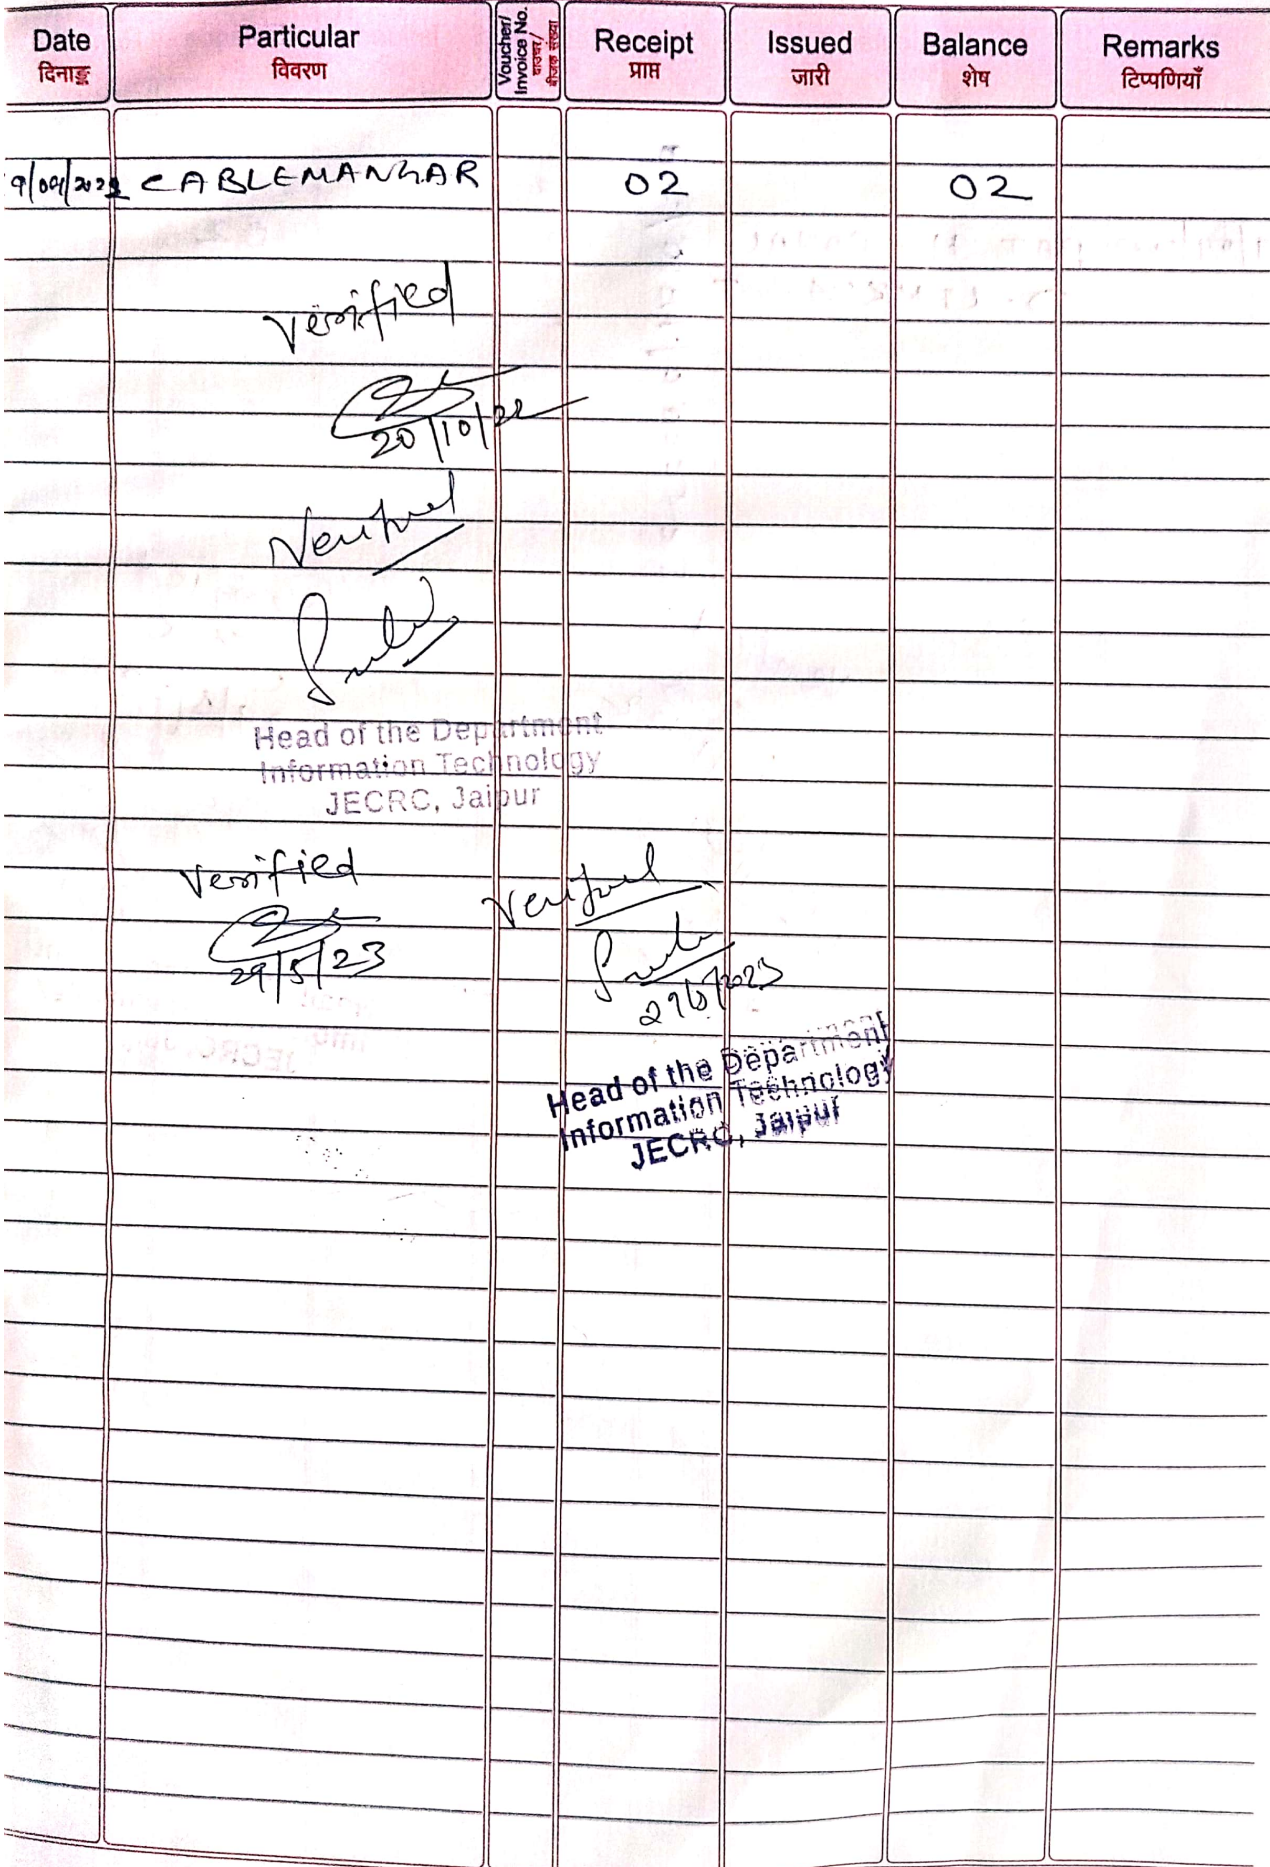 Date Particular Voucher/ Invoice No. Receipt Issued Balance Remarks
दिनाङ्क विवरण वाउचर/ बीजक संख्या प्राप्त जारी शेष टिप्पणियाँ
9/09/2022 CABLEMANGAR 02 02
Verified
20/10/22
Verified
Head of the Department
Information Technology
JECRC, Jaipur
Verified
29/5/23
Verified
29/5/2023
Head of the Department
Information Technology
JECRC, Jaipur